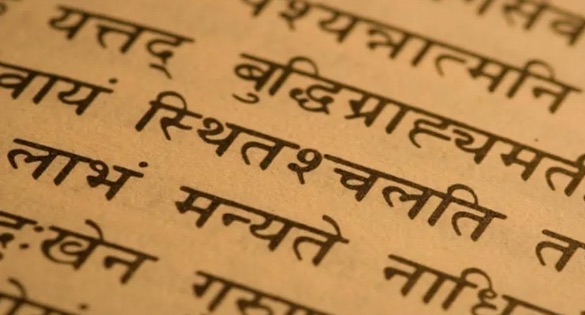 पश्यन्नात्मनि
यत्तद् बुद्धिग्राह्यमती
वायं स्थितश्चलति त
लाभं मन्यते नाधि
दुःखेन